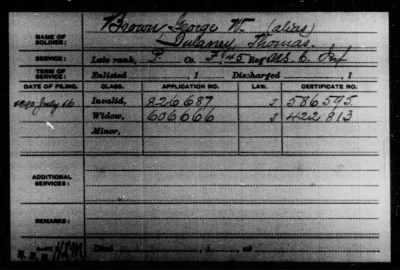 NAME OF SOLDIER: Brown George W. (alias)
Dulaney, Thomas.
SERVICE: Late rank, P. Co. F. 45 Reg't U.S. C. Inf
TERM OF SERVICE: Enlisted , 1 Discharged , 1
DATE OF FILING. CLASS. APPLICATION NO. LAW. CERTIFICATE NO.
1890 July 16 Invalid, 826687 J 586595.
Widow, 606666 J 422813
Minor,
ADDITIONAL SERVICES:
REMARKS:
Died , 1 , at